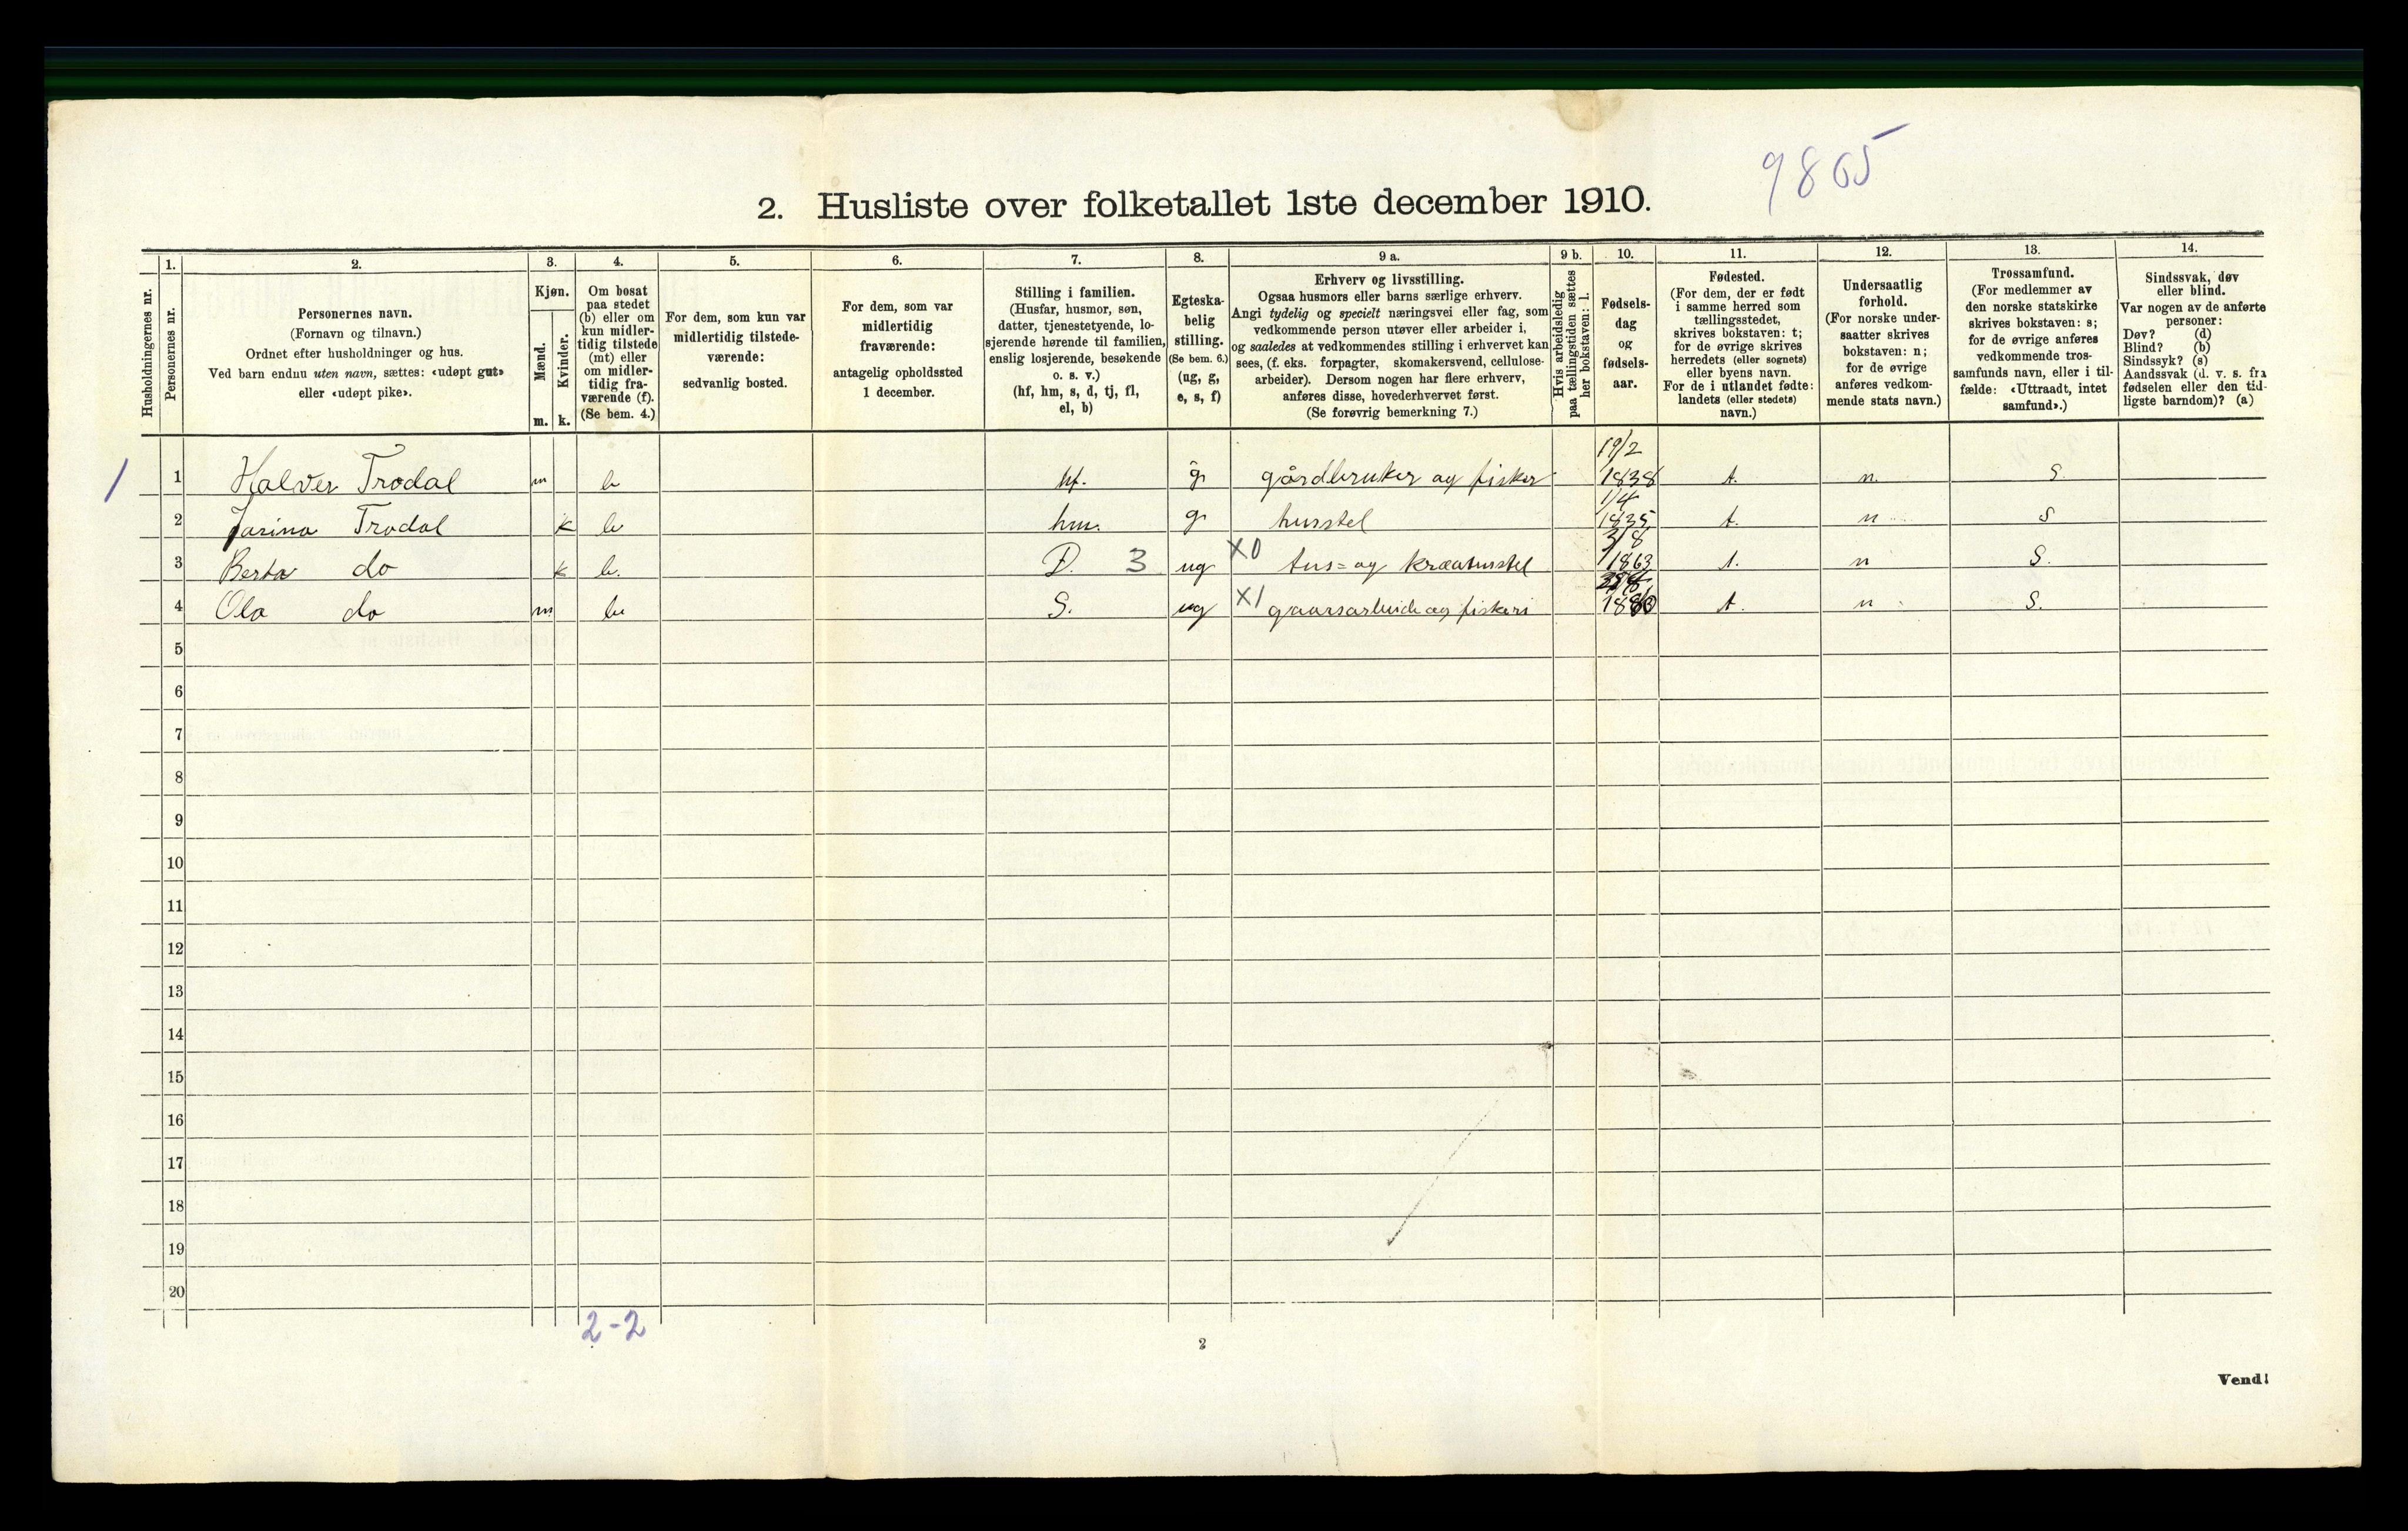 9865
2. Husliste over folketallet 1ste december 1910.
Husholdningernes nr.
1.
Personernes nr.
2.
Personernes navn.
(Fornavn og tilnavn.)
Ordnet efter husholdninger og hus.
Ved barn endnu uten navn, sættes: «udøpt gut»
eller «udøpt pike».
3.
Kjøn.
Mænd.
Kvinder.
m. k.
4.
Om bosat
paa stedet
(b) eller om
kun midler-
tidig tilstede
(mt) eller
om midler-
tidig fra-
værende (f).
(Se bem. 4.)
5.
For dem, som kun var
midlertidig tilstede-
værende:
sedvanlig bosted.
6.
For dem, som var
midlertidig
fraværende:
antagelig opholdssted
1 december.
7.
Stilling i familien.
(Husfar, husmor, søn,
datter, tjenestetyende, lo-
sjerende hørende til familien,
enslig losjerende, besøkende
o. s. v.)
(hf, hm, s, d, tj, fl,
el, b)
8.
Egteska-
belig
stilling.
(Se bem. 6.)
(ug, g,
e, s, f)
9 a.
Erhverv og livsstilling.
Ogsaa husmors eller barns særlige erhverv.
Angi tydelig og specielt næringsvei eller fag, som
vedkommende person utøver eller arbeider i,
og saaledes at vedkommendes stilling i erhvervet kan
sees, (f. eks. forpagter, skomakersvend, cellulose-
arbeider). Dersom nogen har flere erhverv,
anføres disse, hovederhvervet først.
(Se forøvrig bemerkning 7.)
9 b.
Hvis arbeidsledig
paa tællingstiden sættes
her bokstaven: l.
10.
Fødsels-
dag
og
fødsels-
aar.
11.
Fødested.
(For dem, der er født
i samme herred som
tællingsstedet,
skrives bokstaven: t;
for de øvrige skrives
herredets (eller sognets)
eller byens navn.
For de i utlandet fødte:
landets (eller stedets)
navn.)
12.
Undersaatlig
forhold.
(For norske under-
saatter skrives
bokstaven: n;
for de øvrige
anføres vedkom-
mende stats navn.)
13.
Trossamfund.
(For medlemmer av
den norske statskirke
skrives bokstaven: s;
for de øvrige anføres
vedkommende tros-
samfunds navn, eller i til-
fælde: «Uttraadt, intet
samfund».)
14.
Sindssvak, døv
eller blind.
Var nogen av de anførte
personer:
Døv? (d)
Blind? (b)
Sindssyk? (s)
Aandssvak (d. v. s. fra
fødselen eller den tid-
ligste barndom)? (a)
1 1 Halver Trodal m b hf. g gårdbruker og fisker 19/2 1838 t. n. S.
2 Jasina Trodal k b hm. g husstel 1/4 1835 t. n S
3 Berta do k b. D. 3 ug X0 hus= og kræaturstel 3/8 1863 t. n S.
4 Ola do m b S. ug X1 gaarsarbeide og fiskeri t. n S.
5
6
7
8
9
10
11
12
13
14
15
16
17
18
19
20
2-2
2
Vend!